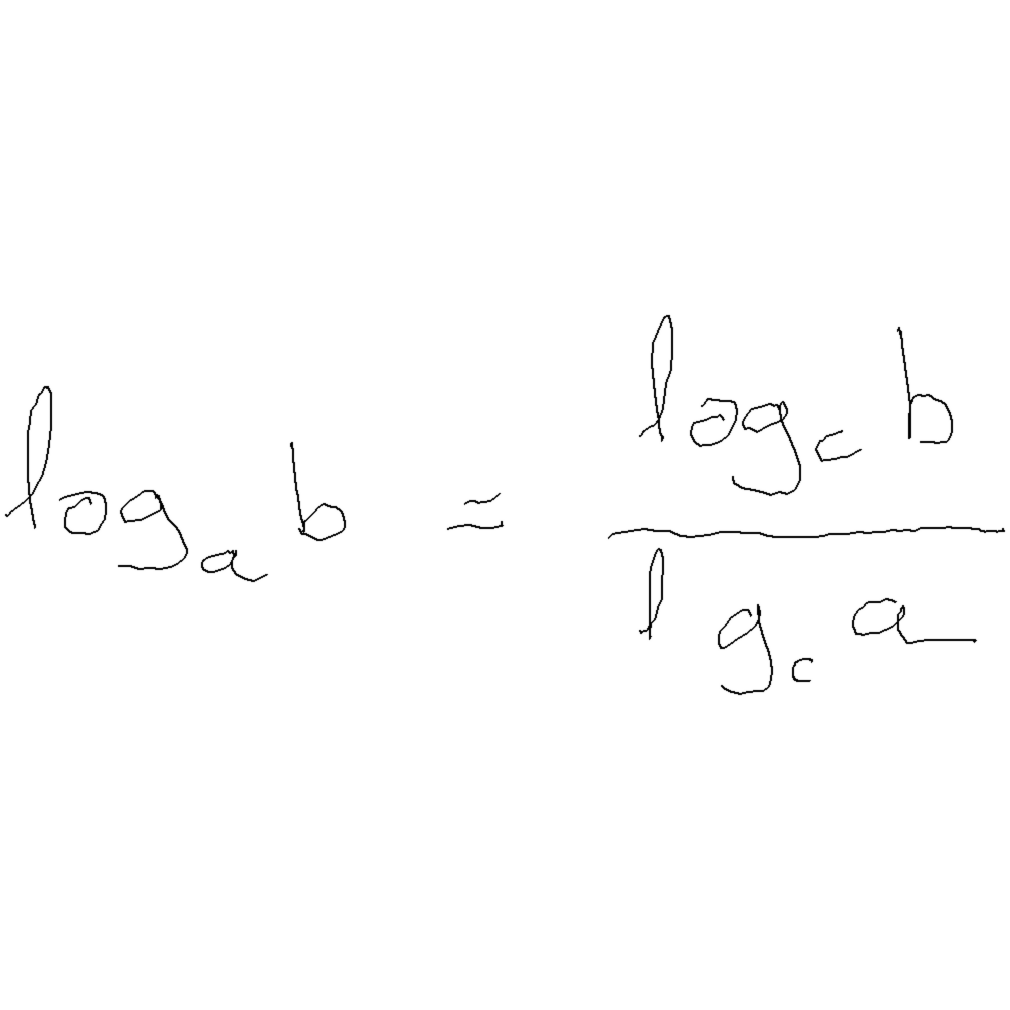 log_a b = \frac{log_c b}{l g_c a}